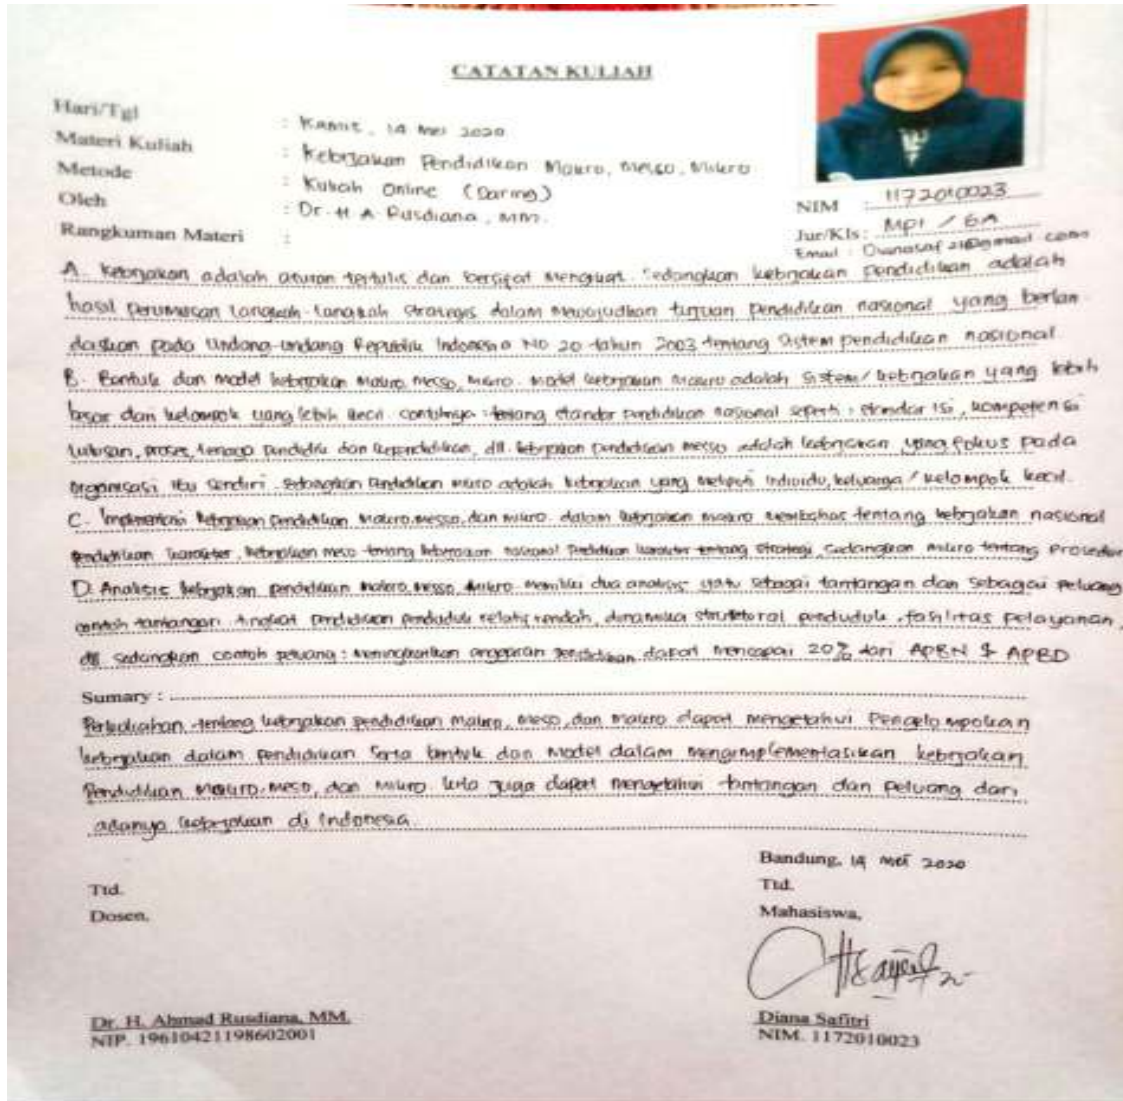 CATATAN KULIAH
Hari/Tgl : Kamis, 14 Mei 2020
Materi Kuliah : Kebijakan Pendidikan Makro, Messo, Mikro
Metode : Kuliah Online (Daring)
Oleh : Dr. H. A. Rusdiana, MM.
Rangkuman Materi :
NIM : 1172010023
Jur/Kls : MPI / 6A
Email :
A. Kebijakan adalah aturan tertulis dan bersifat mengikat. Sedangkan kebijakan pendidikan adalah
hasil perumusan langkah-langkah strategis dalam mewujudkan tujuan pendidikan nasional yang berlan
daskan pada Undang-undang Republik Indonesia No 20 tahun 2003 tentang sistem pendidikan nasional.
B. Bentuk dan model kebijakan makro, messo, mikro. model kebijakan makro adalah sistem/kebijakan yang lebih
besar dan kelompok yang lebih kecil. contohnya : tentang standar pendidikan nasional seperti : standar isi, kompetensi
lulusan, proses, tenaga pendidik dan kependidikan, dll. kebijakan pendidikan messo adalah kebijakan yang fokus pada
organisasi itu sendiri. Sedangkan pendidikan mikro adalah kebijakan yang meliputi individu, keluarga / kelompok kecil.
C. Implementasi kebijakan pendidikan makro, messo, dan mikro. dalam kebijakan makro membahas tentang kebijakan nasional
pendidikan karakter, kebijakan meso tentang kebijakan nasional pendidikan karakter tentang strategi, sedangkan mikro tentang prosedur
D. Analisis kebijakan pendidikan makro, messo, mikro memiliki dua analisis yaitu sebagai tantangan dan sebagai peluang
contoh tantangan : tingkat pendidikan penduduk relatif rendah, dinamika struktural penduduk, fasilitas pelayanan,
dll. sedangkan contoh peluang : meningkatkan anggaran pendidikan dapat mencapai 20% dari APBN & APBD
Sumary :
tentang kebijakan pendidikan makro, meso, dan makro dapat mengetahui Pengelompokan
kebijakan dalam pendidikan serta bentuk dan model dalam mengimplementasikan kebijakan
Pendidikan makro, meso, dan mikro. kita juga dapat mengetahui tantangan dan peluang dari
adanya kebijakan di Indonesia.
Bandung, 14 mei 2020
Ttd. Ttd.
Dosen, Mahasiswa,
Dr. H. Ahmad Rusdiana, MM. Diana Safitri
NIP. 19610421198602001 NIM. 1172010023